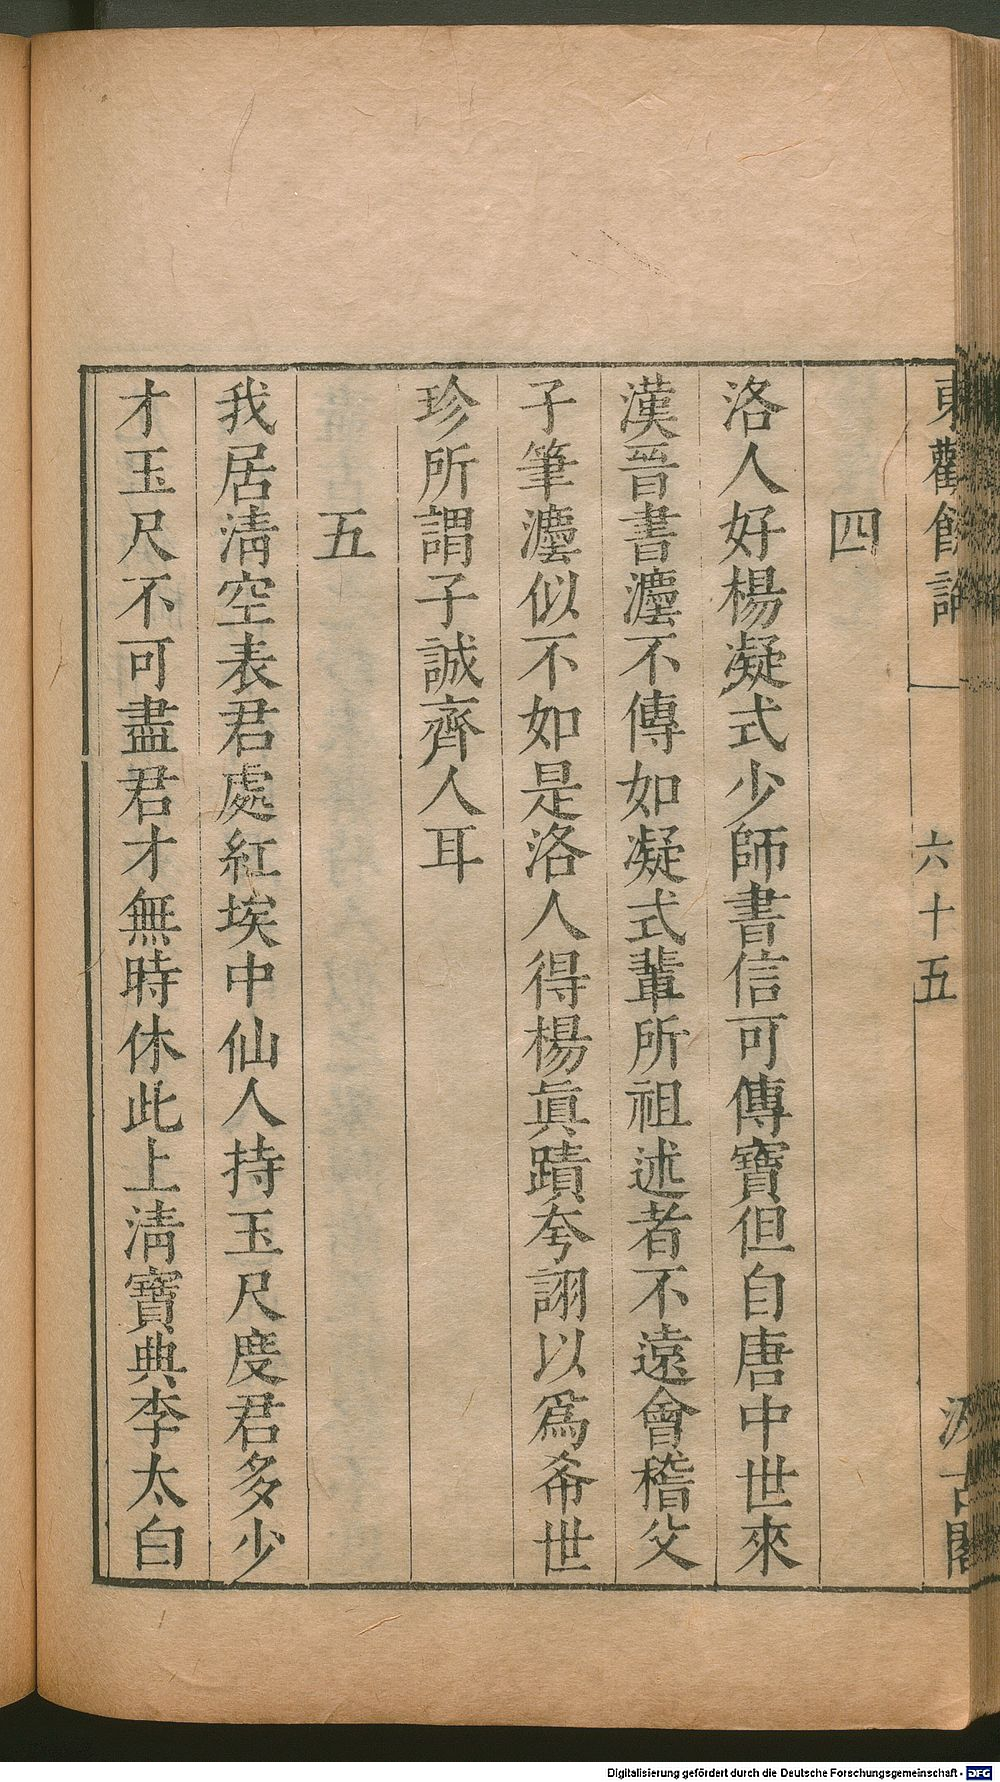 東觀餘論
六十五
汲古閣
四
洛人好楊凝式少師書信可傳寶但自唐中世來
漢晉書灋不傳如凝式輩所祖述者不遠會稽父
子筆灋似不如是洛人得楊眞蹟夸詡以爲希世
珍所謂子誠齊人耳
五
我居淸空表君處紅埃中仙人持玉尺度君多少
才玉尺不可盡君才無時休此上淸寶典李太白
Digitalisierung gefördert durch die Deutsche Forschungsgemeinschaft - DFG